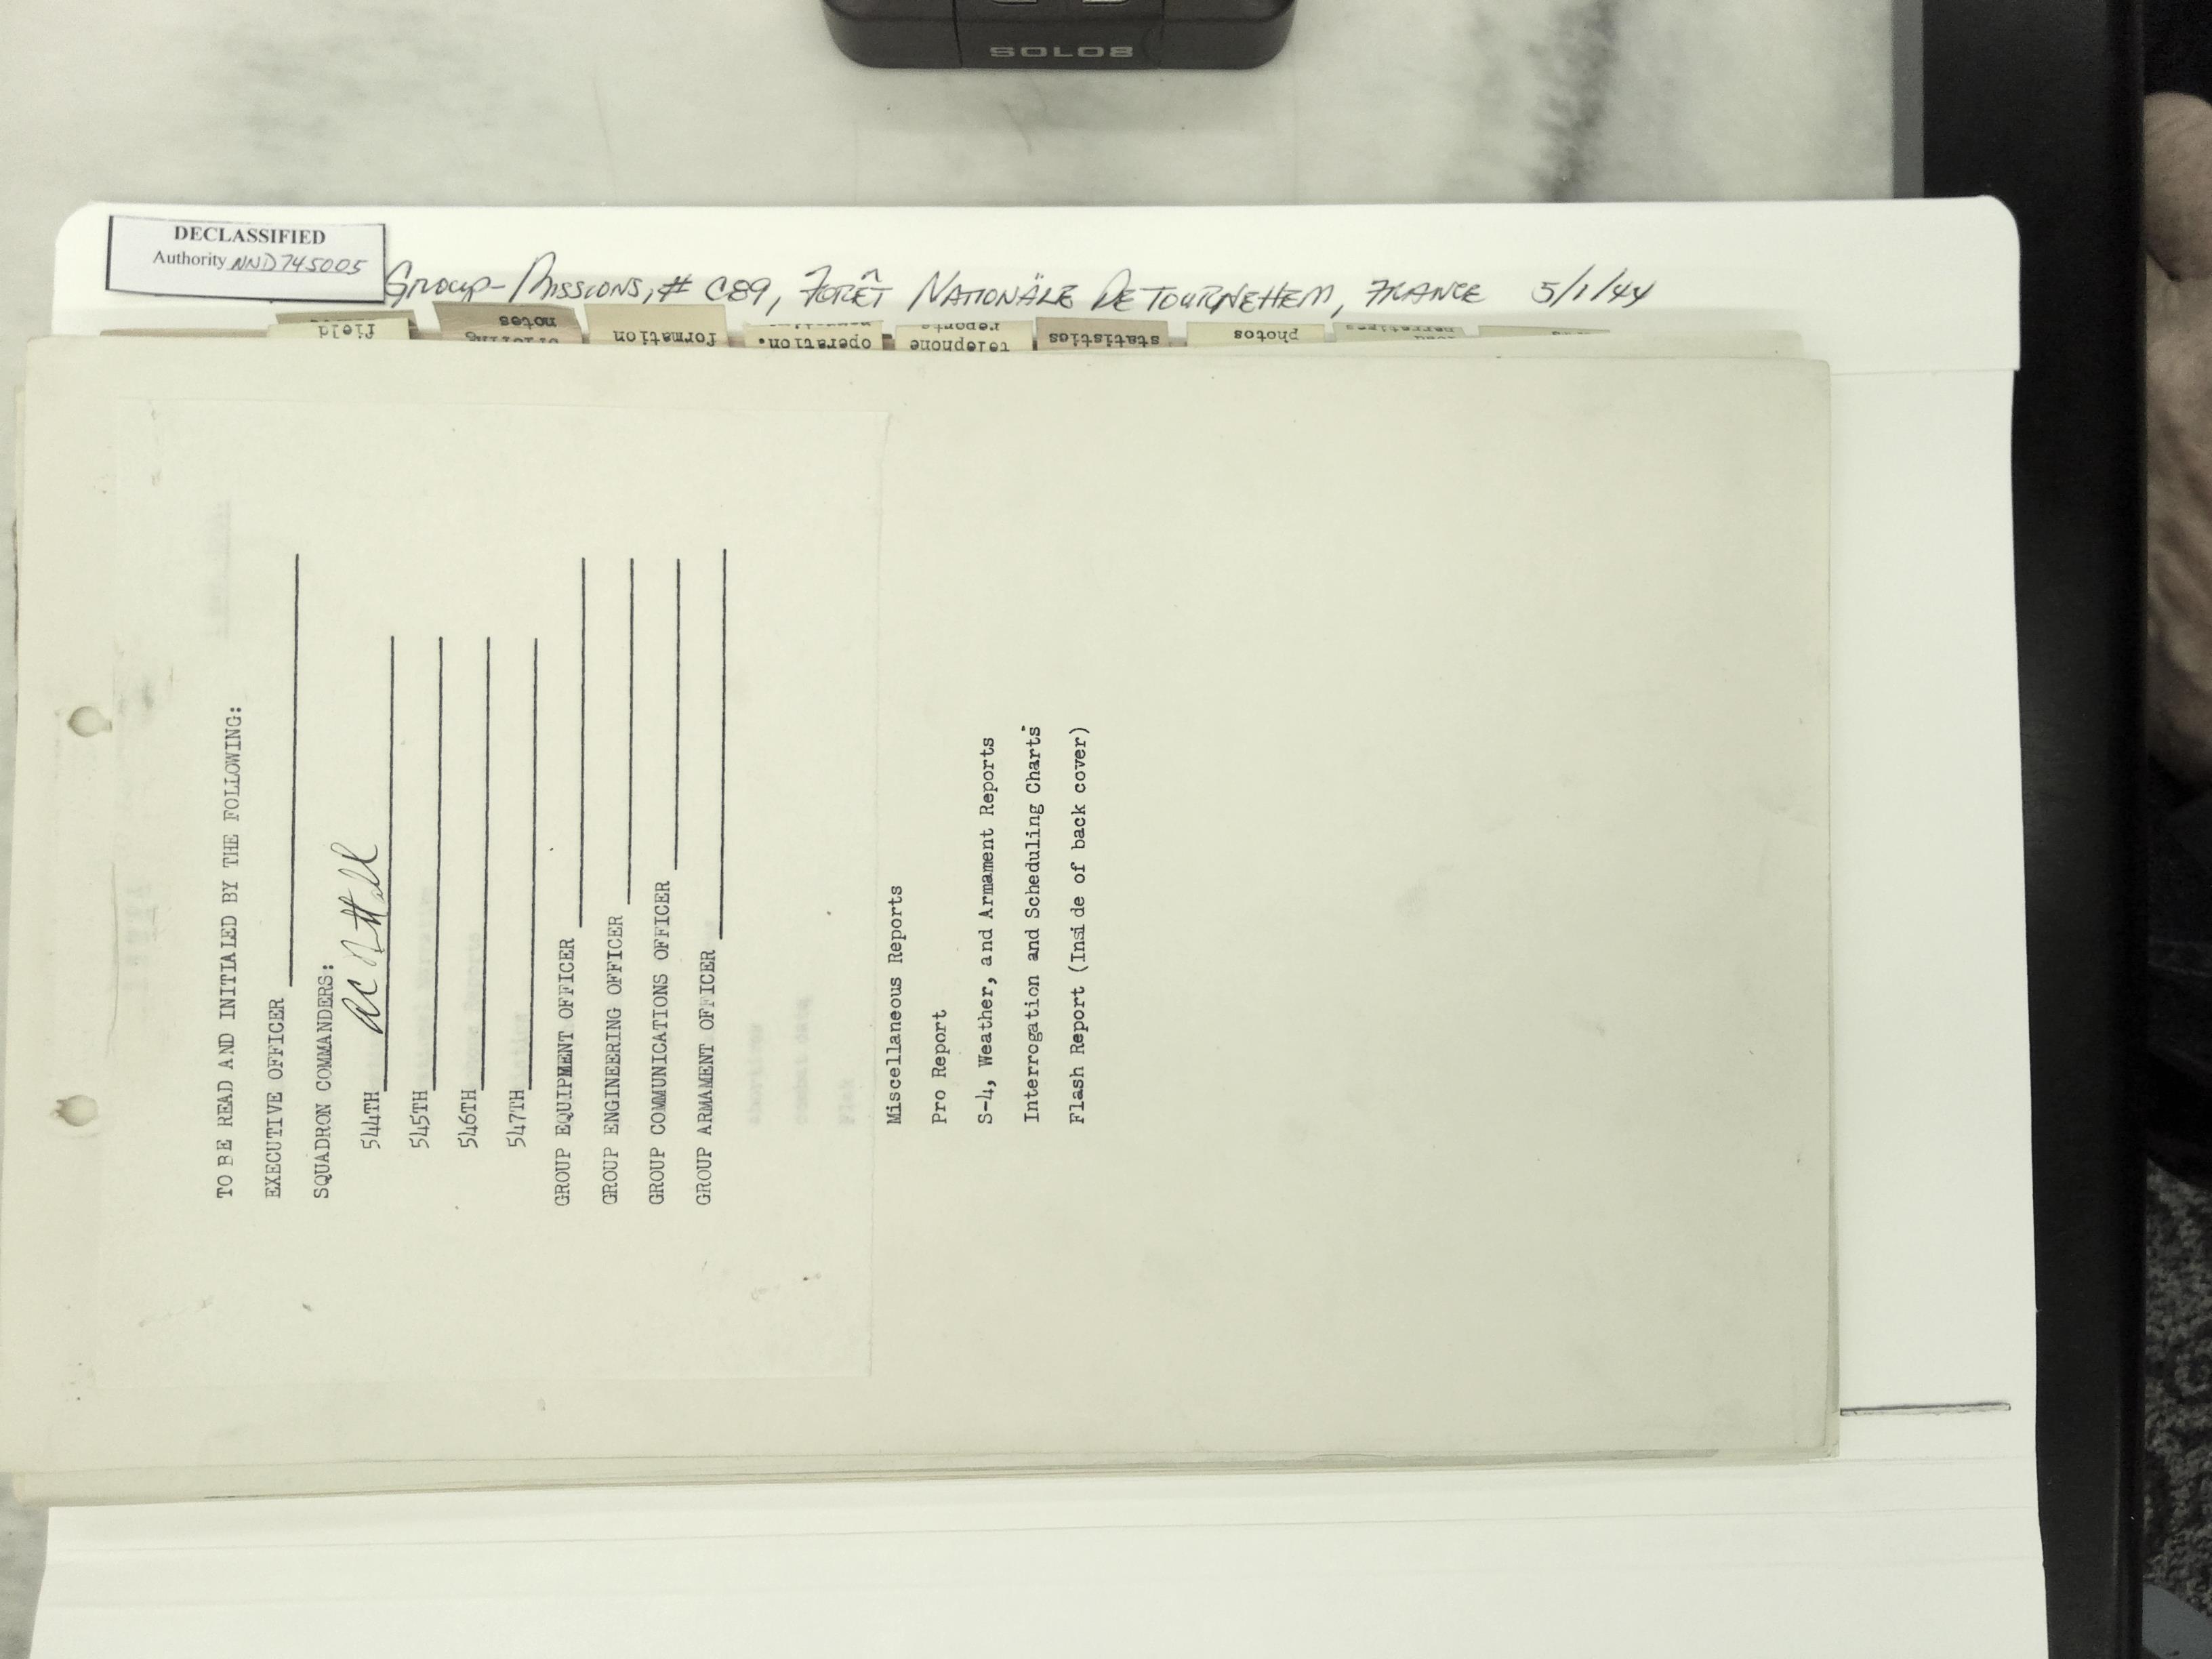 SOLO8
DECLASSIFIED
Authority NND745005
Group-Missions, # C89, Forêt Nationäle De Tournehem, France 5/1/44
field
notes
formation
operation.
telephone
reports
statistics
photos
TO BE READ AND INITIALED BY THE FOLLOWING:
EXECUTIVE OFFICER
SQUADRON COMMANDERS:
544TH
545TH
546TH
547TH
GROUP EQUIPMENT OFFICER
GROUP ENGINEERING OFFICER
GROUP COMMUNICATIONS OFFICER
GROUP ARMAMENT OFFICER
Miscellaneous Reports
Pro Report
S-4, Weather, and Armament Reports
Interrogation and Scheduling Charts
Flash Report (Insi de of back cover)